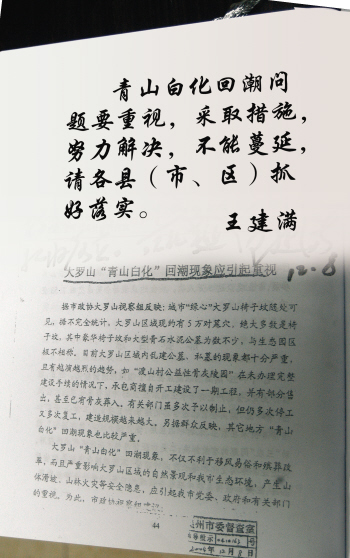 青山白化回潮问
题要重视，采取措施，
努力解决，不能蔓延，
请各县（市、区）抓
好落实。
王建满
12.8
大罗山“青山白化”回潮现象应引起重视
据市政协大罗山视察组反映：城市“绿心”大罗山椅子坟随处可
见。据不完全统计，大罗山区域现约有5万对墓穴，绝大多数是椅子
坟，其中豪华椅子坟和大型青石水泥公墓为数不少，与生态园区
极不相称。目前大罗山区域内乱建公墓、私墓的现象都十分严重，
且有越演越烈的趋势。如“渡山村公益性骨灰陵园”在未办理完整
建设手续的情况下，承包商擅自开工建设了一期工程，并有部分售
出，甚至已有骨灰葬入。有关部门虽多次予以制止，但仍多次停工
又多次复工，建造规模越来越大。另据群众反映，其它地方“青山
白化”回潮现象也比较严重。
大罗山“青山白化”回潮现象，不仅不利于移风易俗和殡葬改
革，而且严重影响大罗山区域的自然景观和我市生态环境，产生山
体滑坡、山林火灾等安全隐患，应引起我市党委、政府和有关部门
的重视。为此，市政协视察组
44
州市委督查室